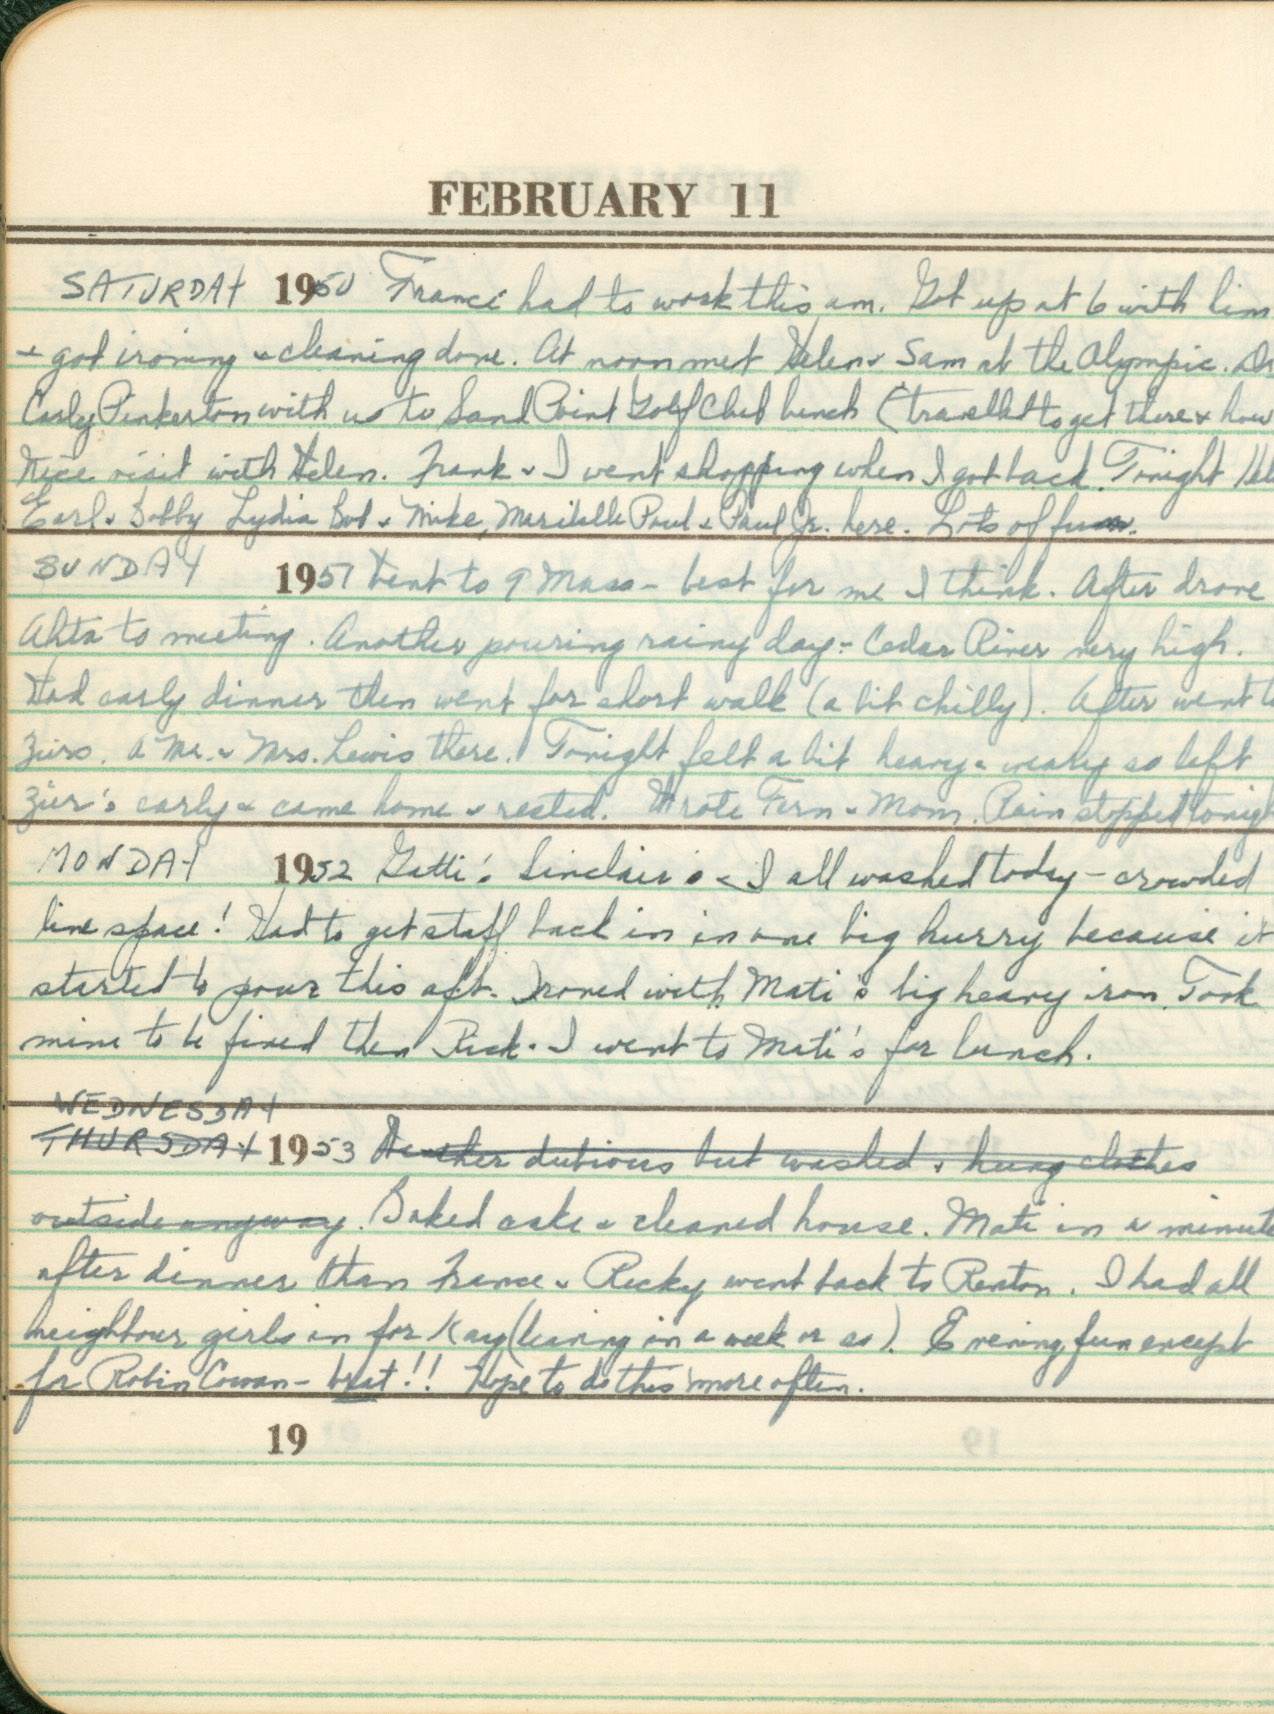 FEBRUARY 11
SATURDAY 1950 France had to work this am. Got up at 6 with him
+ got ironing + cleaning done. At noon met Helen + Sam at the Olympic.
Carly Pinkerton with us to Sand Point Golf Club lunch (travelled to get there + how
Nice visit with Helen. Frank + I went shopping when I got back. Tonight Hel
Earl + Bobby Lydia Bob + Mike, Maribelle Paul + Paul Jr. here. Lots of fun.
SUNDAY 1951 Went to 9 Mass - best for me I think. After drove
Ahta to meeting. Another pouring rainy day - Cedar River very high.
Had early dinner then went for short walk (a bit chilly). After went to
Zurs. A Mr. + Mrs. Lewis there. Tonight felt a bit heavy + weary so left
Zur's early + came home + rested. Wrote Fern + Mom. Rain stopped tonigh
MONDAY 1952 Gatti's Sinclair's + I all washed today - crowded
line space! Had to get stuff back in in one big hurry because it
started to pour this aft. Ironed with Mati's big heavy iron. Took
mine to be fixed then Rick + I went to Mati's for lunch.
WEDNESDAY
THURSDAY 1953 Weather dubious but washed + hung clothes
outside anyway. Baked cake + cleaned house. Mati in a minute
after dinner than France + Ricky went back to Renton. I had all
neighbour girls in for Kay (leaving in a week or so). Evening fun except
for Robin Cowan - brat!! Hope to do this more often.
19